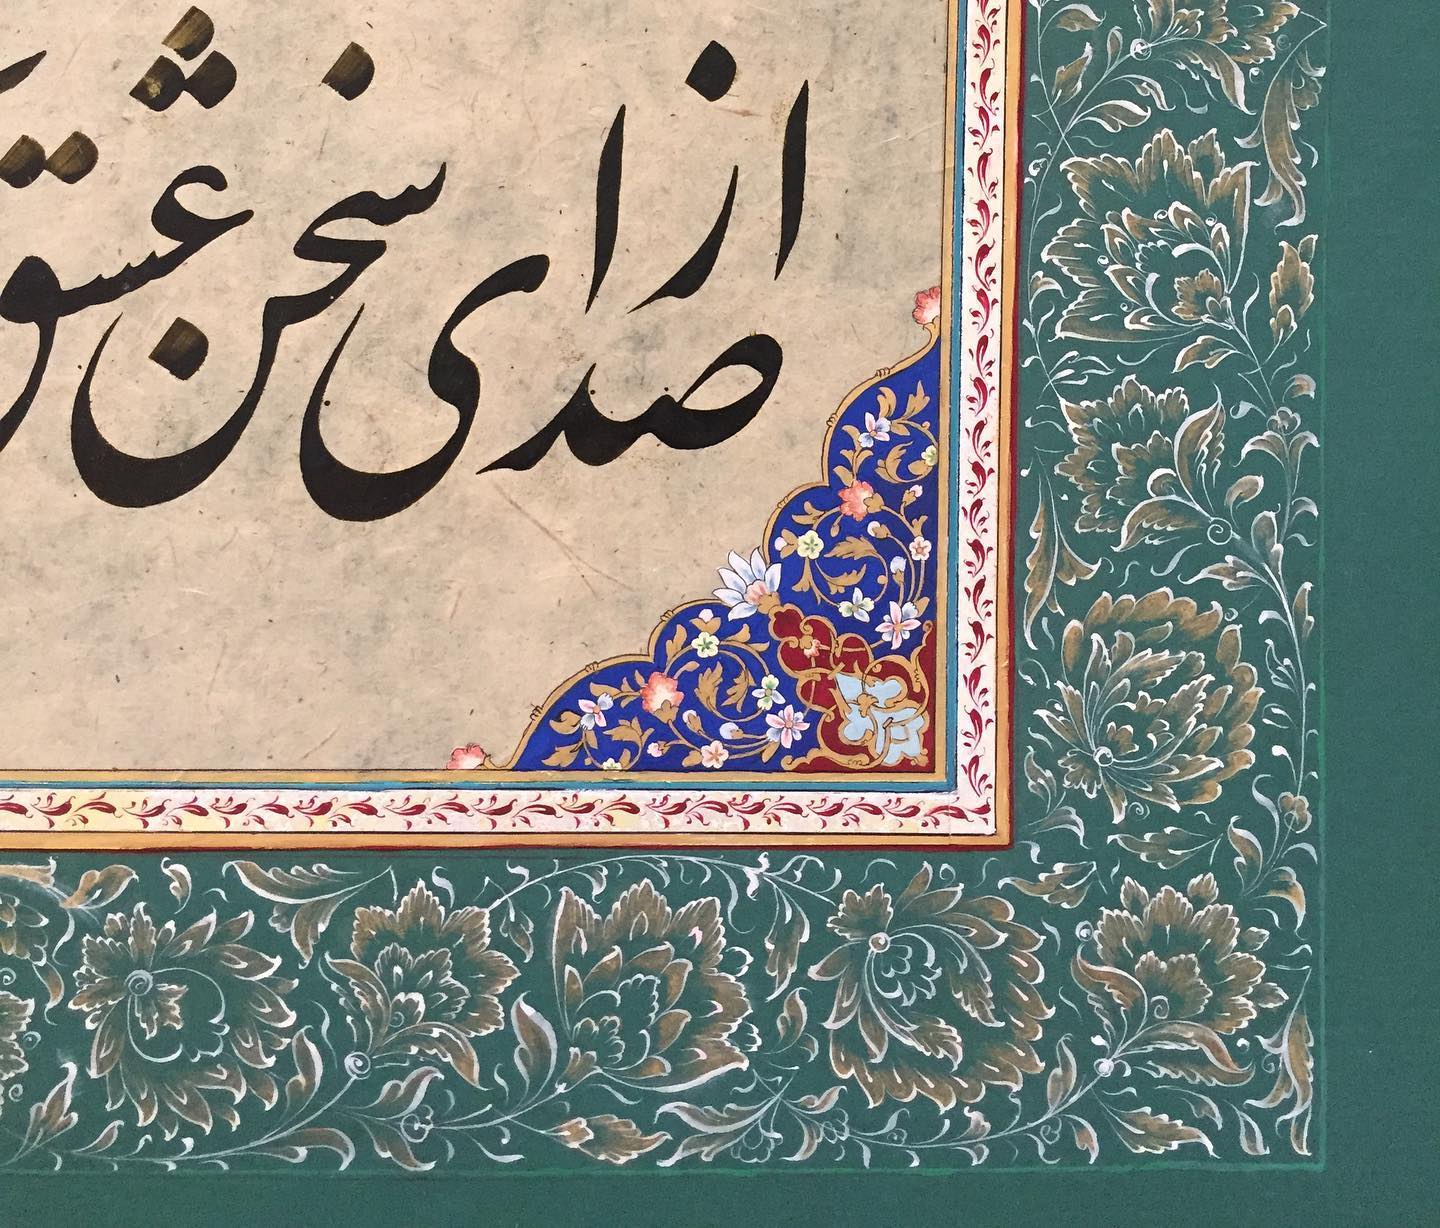 از صدای سخن عشق